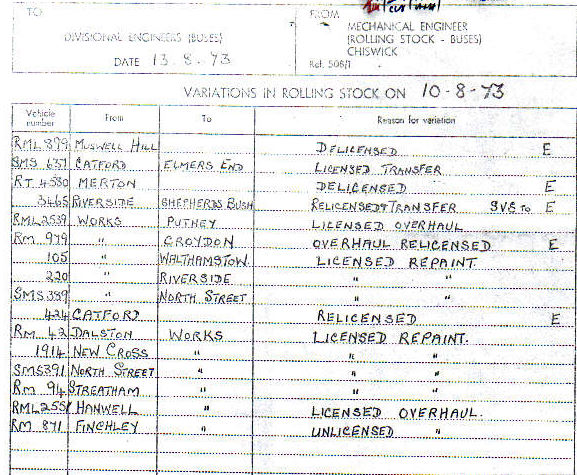 TO
FROM
DIVISIONAL ENGINEERS (BUSES)
MECHANICAL ENGINEER
(ROLLING STOCK - BUSES)
CHISWICK
DATE 13.8.73
Ref. 508/1
VARIATIONS IN ROLLING STOCK ON 10-8-73
Vehicle number From To Reason for variation
RML 899 MUSWELL HILL DELICENSED E
SMS 637 CATFORD ELMERS END LICENSED TRANSFER
RT 4580 MERTON DELICENSED E
3465 RIVERSIDE SHEPHERDS BUSH RELICENSED & TRANSFER SVS TO E
RML 2539 WORKS PUTNEY LICENSED OVERHAUL
RM 979 " CROYDON OVERHAUL RELICENSED E
105 " WALTHAMSTOW LICENSED REPAINT.
220 " RIVERSIDE " "
SMS 389 " NORTH STREET " "
424 CATFORD RELICENSED E
RM 42 DALSTON WORKS LICENSED REPAINT.
1914 NEW CROSS " " "
SMS 391 NORTH STREET " " "
RM 94 STREATHAM " " "
RML 2551 HANWELL " LICENSED OVERHAUL.
RM 871 FINCHLEY " UNLICENSED "